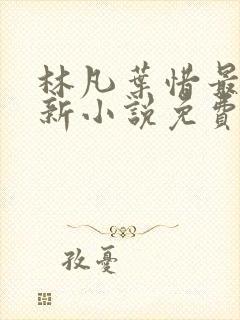 林凡葉惜最
新小說免費
孜憂